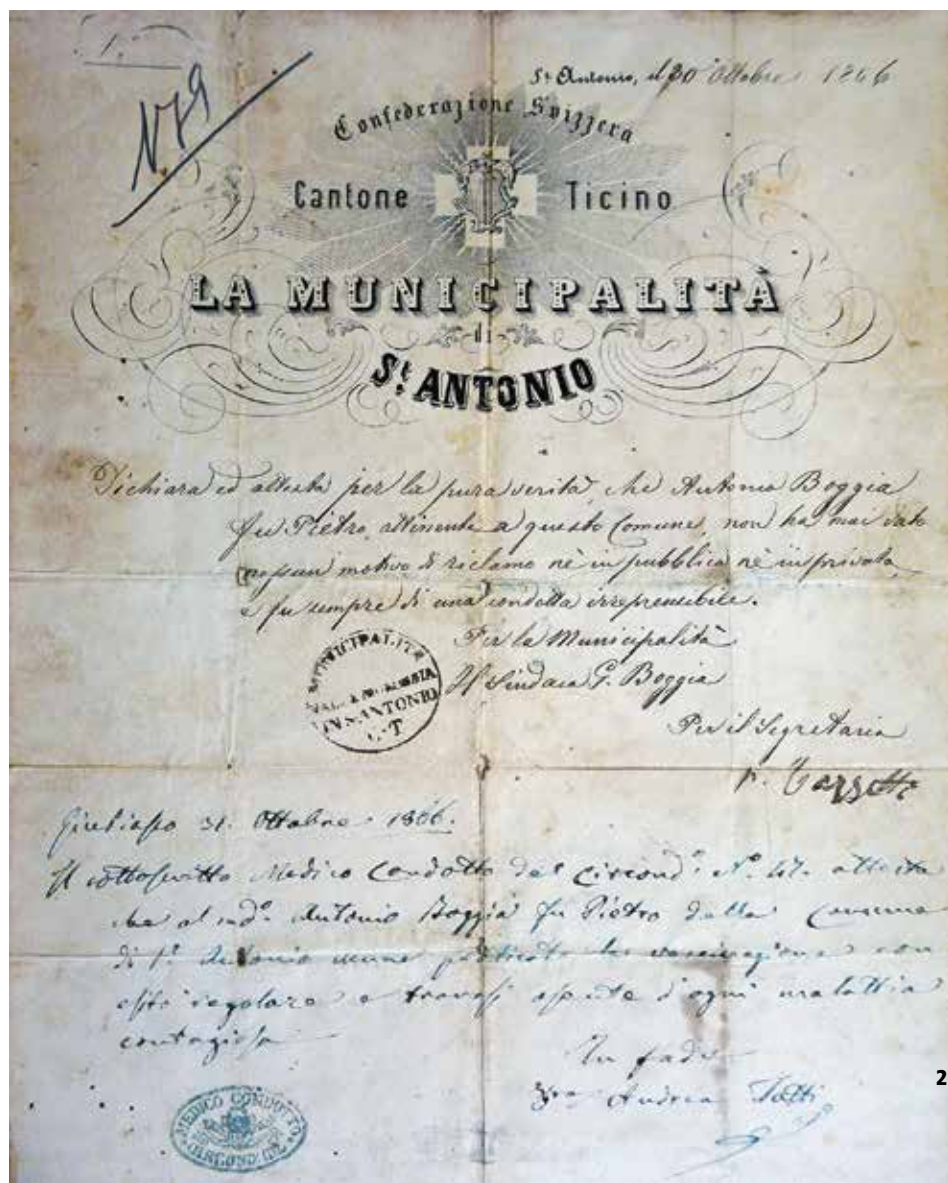 N 79
St Antonio, il 30 Ottobre 1866
Confederazione Svizzera
Cantone Ticino
LA MUNICIPALITÀ
di
St. ANTONIO
Dichiara ed attesta per la pura verità, che Antonio Boggia
fu Pietro, attinente a questo Comune, non ha mai dato
nessun motivo di riclamo nè in pubblica nè in privata,
e fu sempre di una condotta irreprensibile.
Per la Municipalità
Il Sindaco G. Boggia
MUNICIPALITÀ
IN S. ANTONIO
C. T
Per il Segretario
Giubiasco 31. Ottobre 1866.
Il sottoscritto Medico Condotto del Circond.º Nº 47. attesta
che al sudº Antonio Boggia fu Pietro della Comune
di St. Antonio venne praticata la vaccinazione con
esito regolare e trovasi esente d'ogni malattia
contagiosa
In fede
Andrea
MEDICO CONDOTTO
2